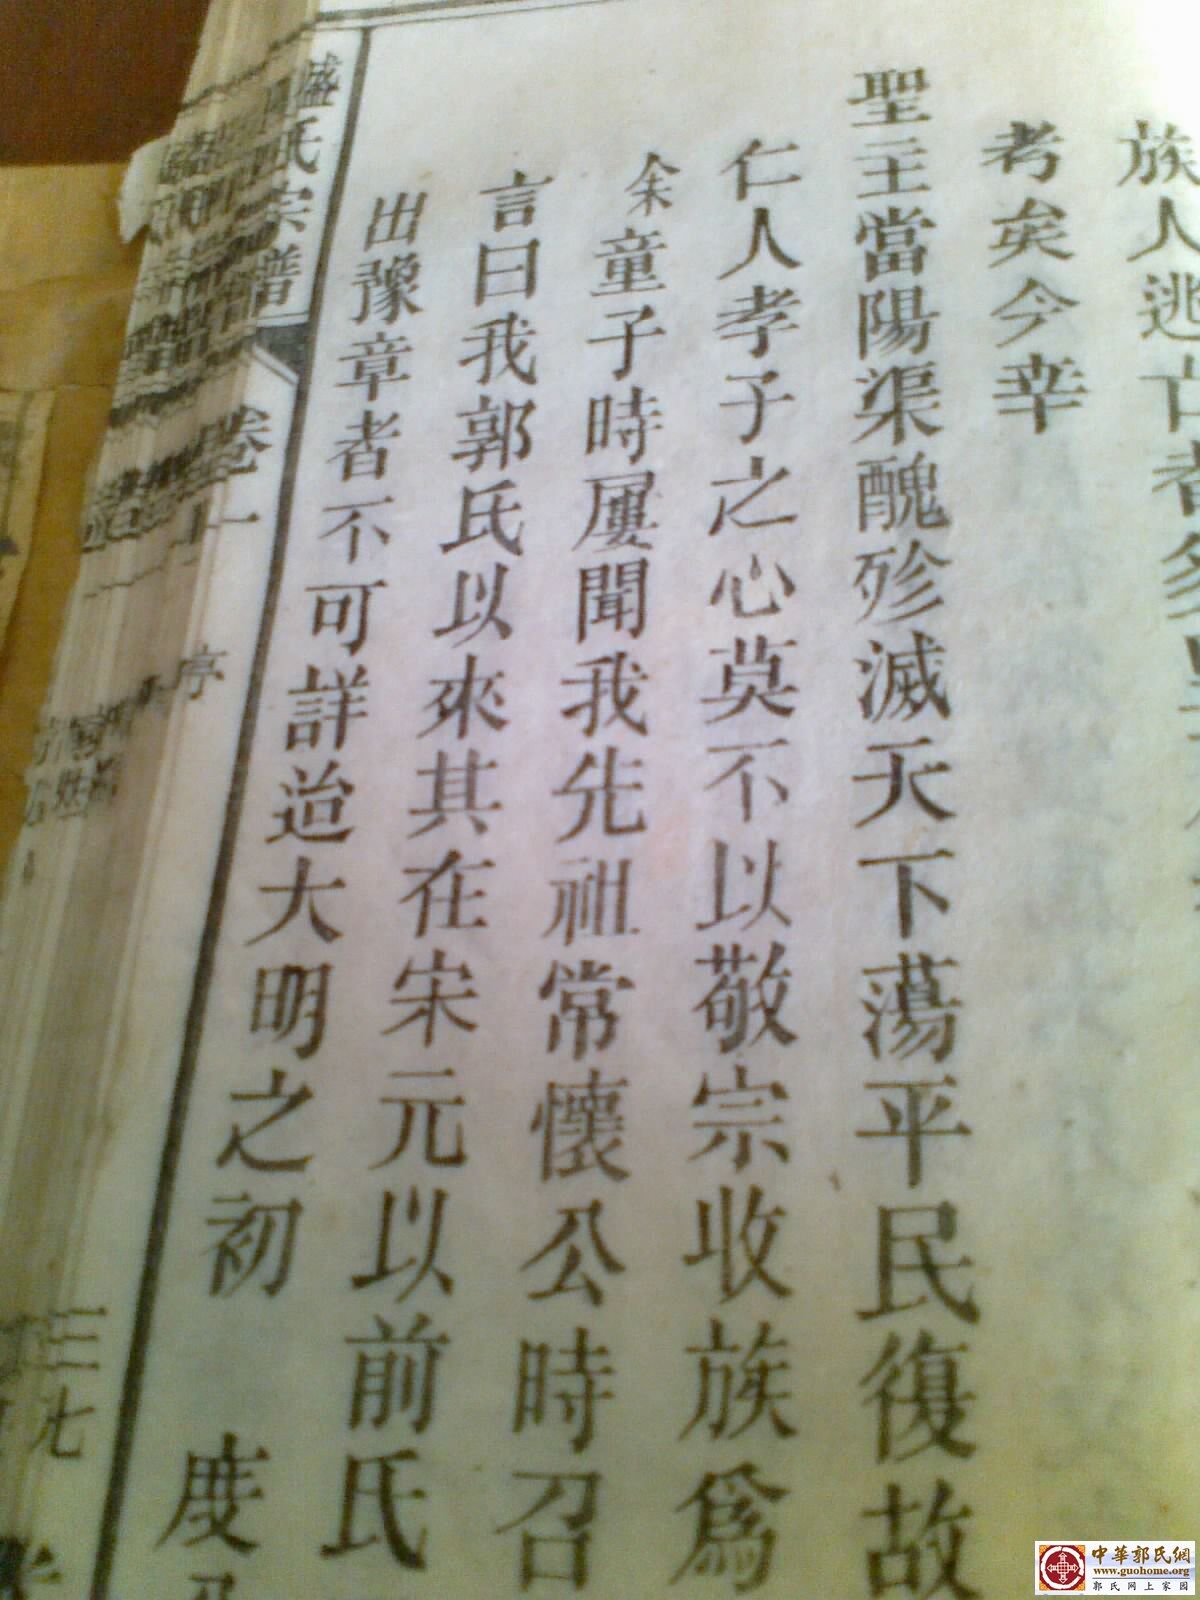 族人逃亡者多
考矣今幸
聖主當陽渠醜殄滅天下蕩平民復故
仁人孝子之心莫不以敬宗收族為
余朱童子時屢聞我先祖常懷公時召
言曰我郭氏以來其在宋元以前氏
出豫章者不可詳迨大明之初 度
盛氏宗譜 卷一 序 三七
中華郭氏網
www.guohome.org
郭氏网上家园